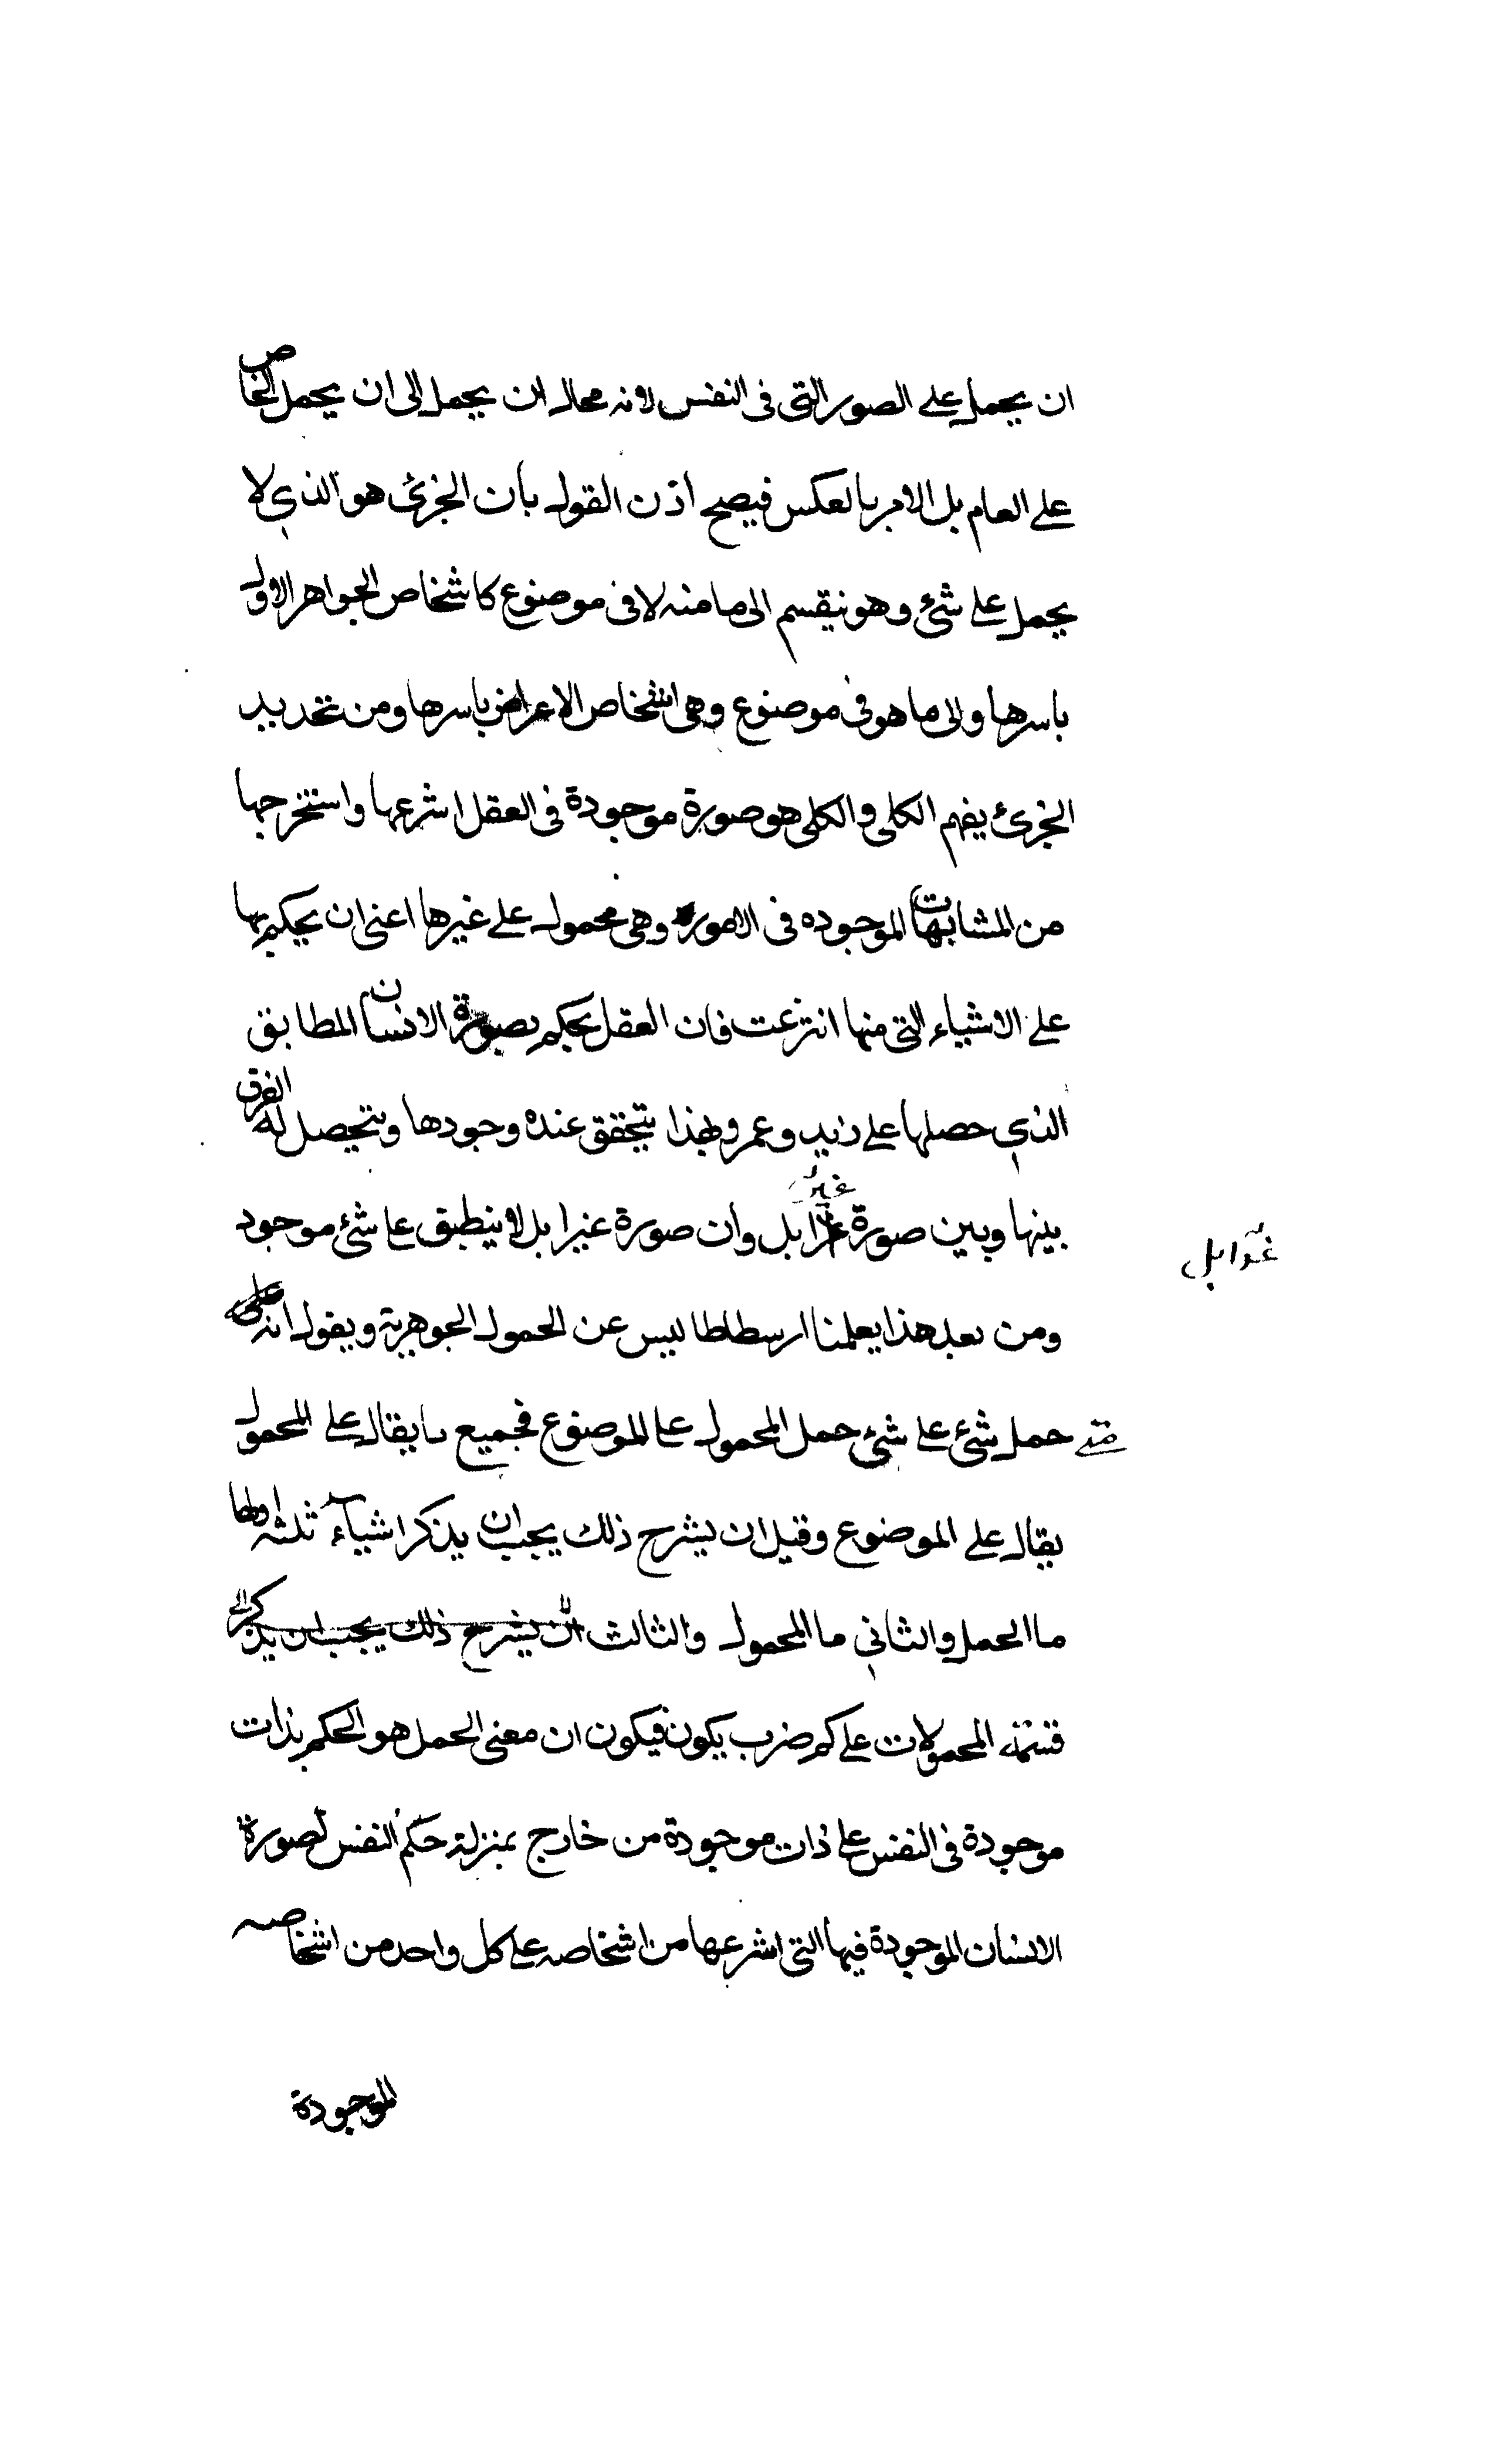 ان يحمل على الصور التى فى النفس لانه محال ان يحمل الى ان يحمل الخاص
على العام بل الامر بالعكس فيصح اذن القول بان الجزئ هو الذي لا
يحمل على شئ وهو ينقسم الى ما منه لا فى موضوع كاشخاص الجواهر الاول
باسرها والى ما هو فى موضوع وهى اشخاص الاعراض باسرها ومن تحديد
الجزئ يفهم الكلى والكلى هو صورة موجودة فى العقل اشرعها واستخرجها
من المشابهات الموجوده فى الامور وهى محموله على غيرها اعنى ان يحكم بها
على الاشياء التى منها انتزعت فان العقل يحكم بصورة الانسان المطابق
الذي حصلها على زايد وعمرو ولهذا يتحقق عنده وجودها ويتحصل له الفرق
بينها وبين صورة غيرا بل وان صورة غنيرا بل لا ينطبق على شئ موجود
ومن بعد هذا يعلمنا ارسططاليس عن الحمول الجوهرية ويقول انه
متى حمل شئ على شئ حمل المحمول على الموضوع فجميع ما يقال على المحمول
يقال على الموضوع وقبل ان يشرح ذلك يجب ان يذكر اشياء ثلثه اولها
ما الحمل والثاني ما المحمول والثالث ان يشرح ذلك يجب ان يذكر الى
قسمة المحمولات على كم ضرب يكون فيكون ان معنى الحمل هو الحكم بذات
موجودة فى النفس على ذات موجودة من خارج بمنزلة حكم النفس لصورة
الانسان الموجودة فيها التى اشرعها من اشخاصه على كل واحد من اشخاصه
الموجودة